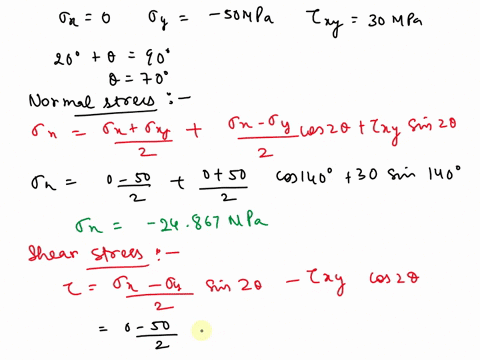 σx = 0 σy = -50 MPa τxy = 30 MPa
20° + θ = 90°
θ = 70°
Normal stress :-
σn = σx + σxy / 2 + σx - σy / 2 cos 2θ + τxy sin 2θ
σn = 0 - 50 / 2 + 0 + 50 / 2 cos 140° + 30 sin 140°
σn = -24.867 MPa
Shear stress :-
τ = σx - σy / 2 sin 2θ - τxy cos 2θ
= 0 - 50 / 2